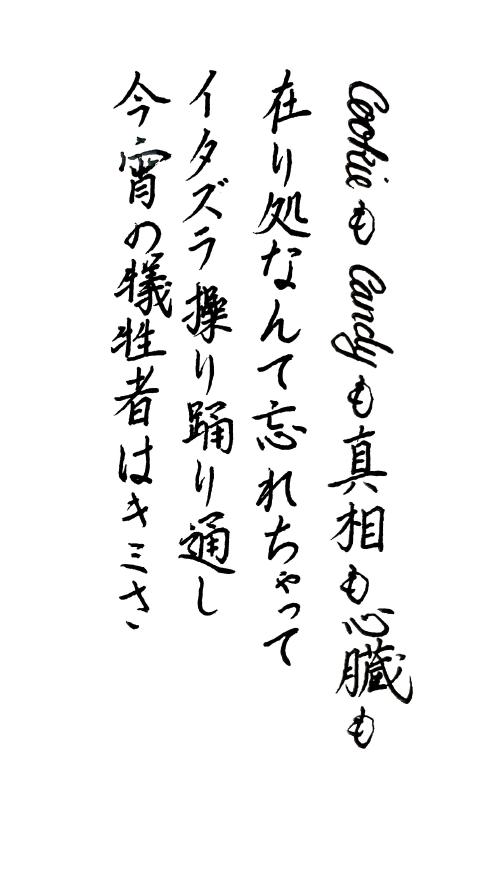 Cookieも Candyも真相も心臓も
在り処なんて忘れちゃって
イタズラ操り踊り通し
今宵の犠牲者はキミさ